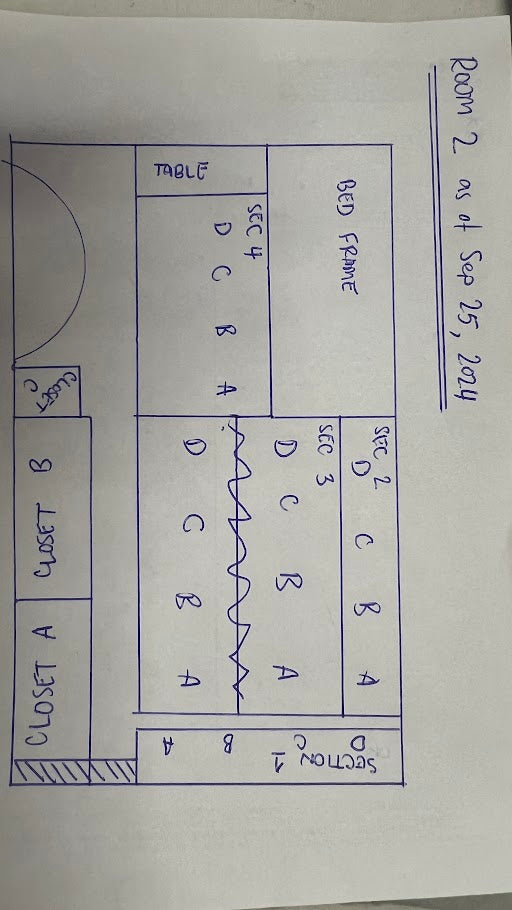 Room 2 as of Sep 25, 2024
BED FRAME
SEC 2
D C B A
SEC 3
D C B A
TABLE
SEC 4
D C B A
D C B A
SECTION 1
D C B A
CLOSET C
CLOSET B
CLOSET A